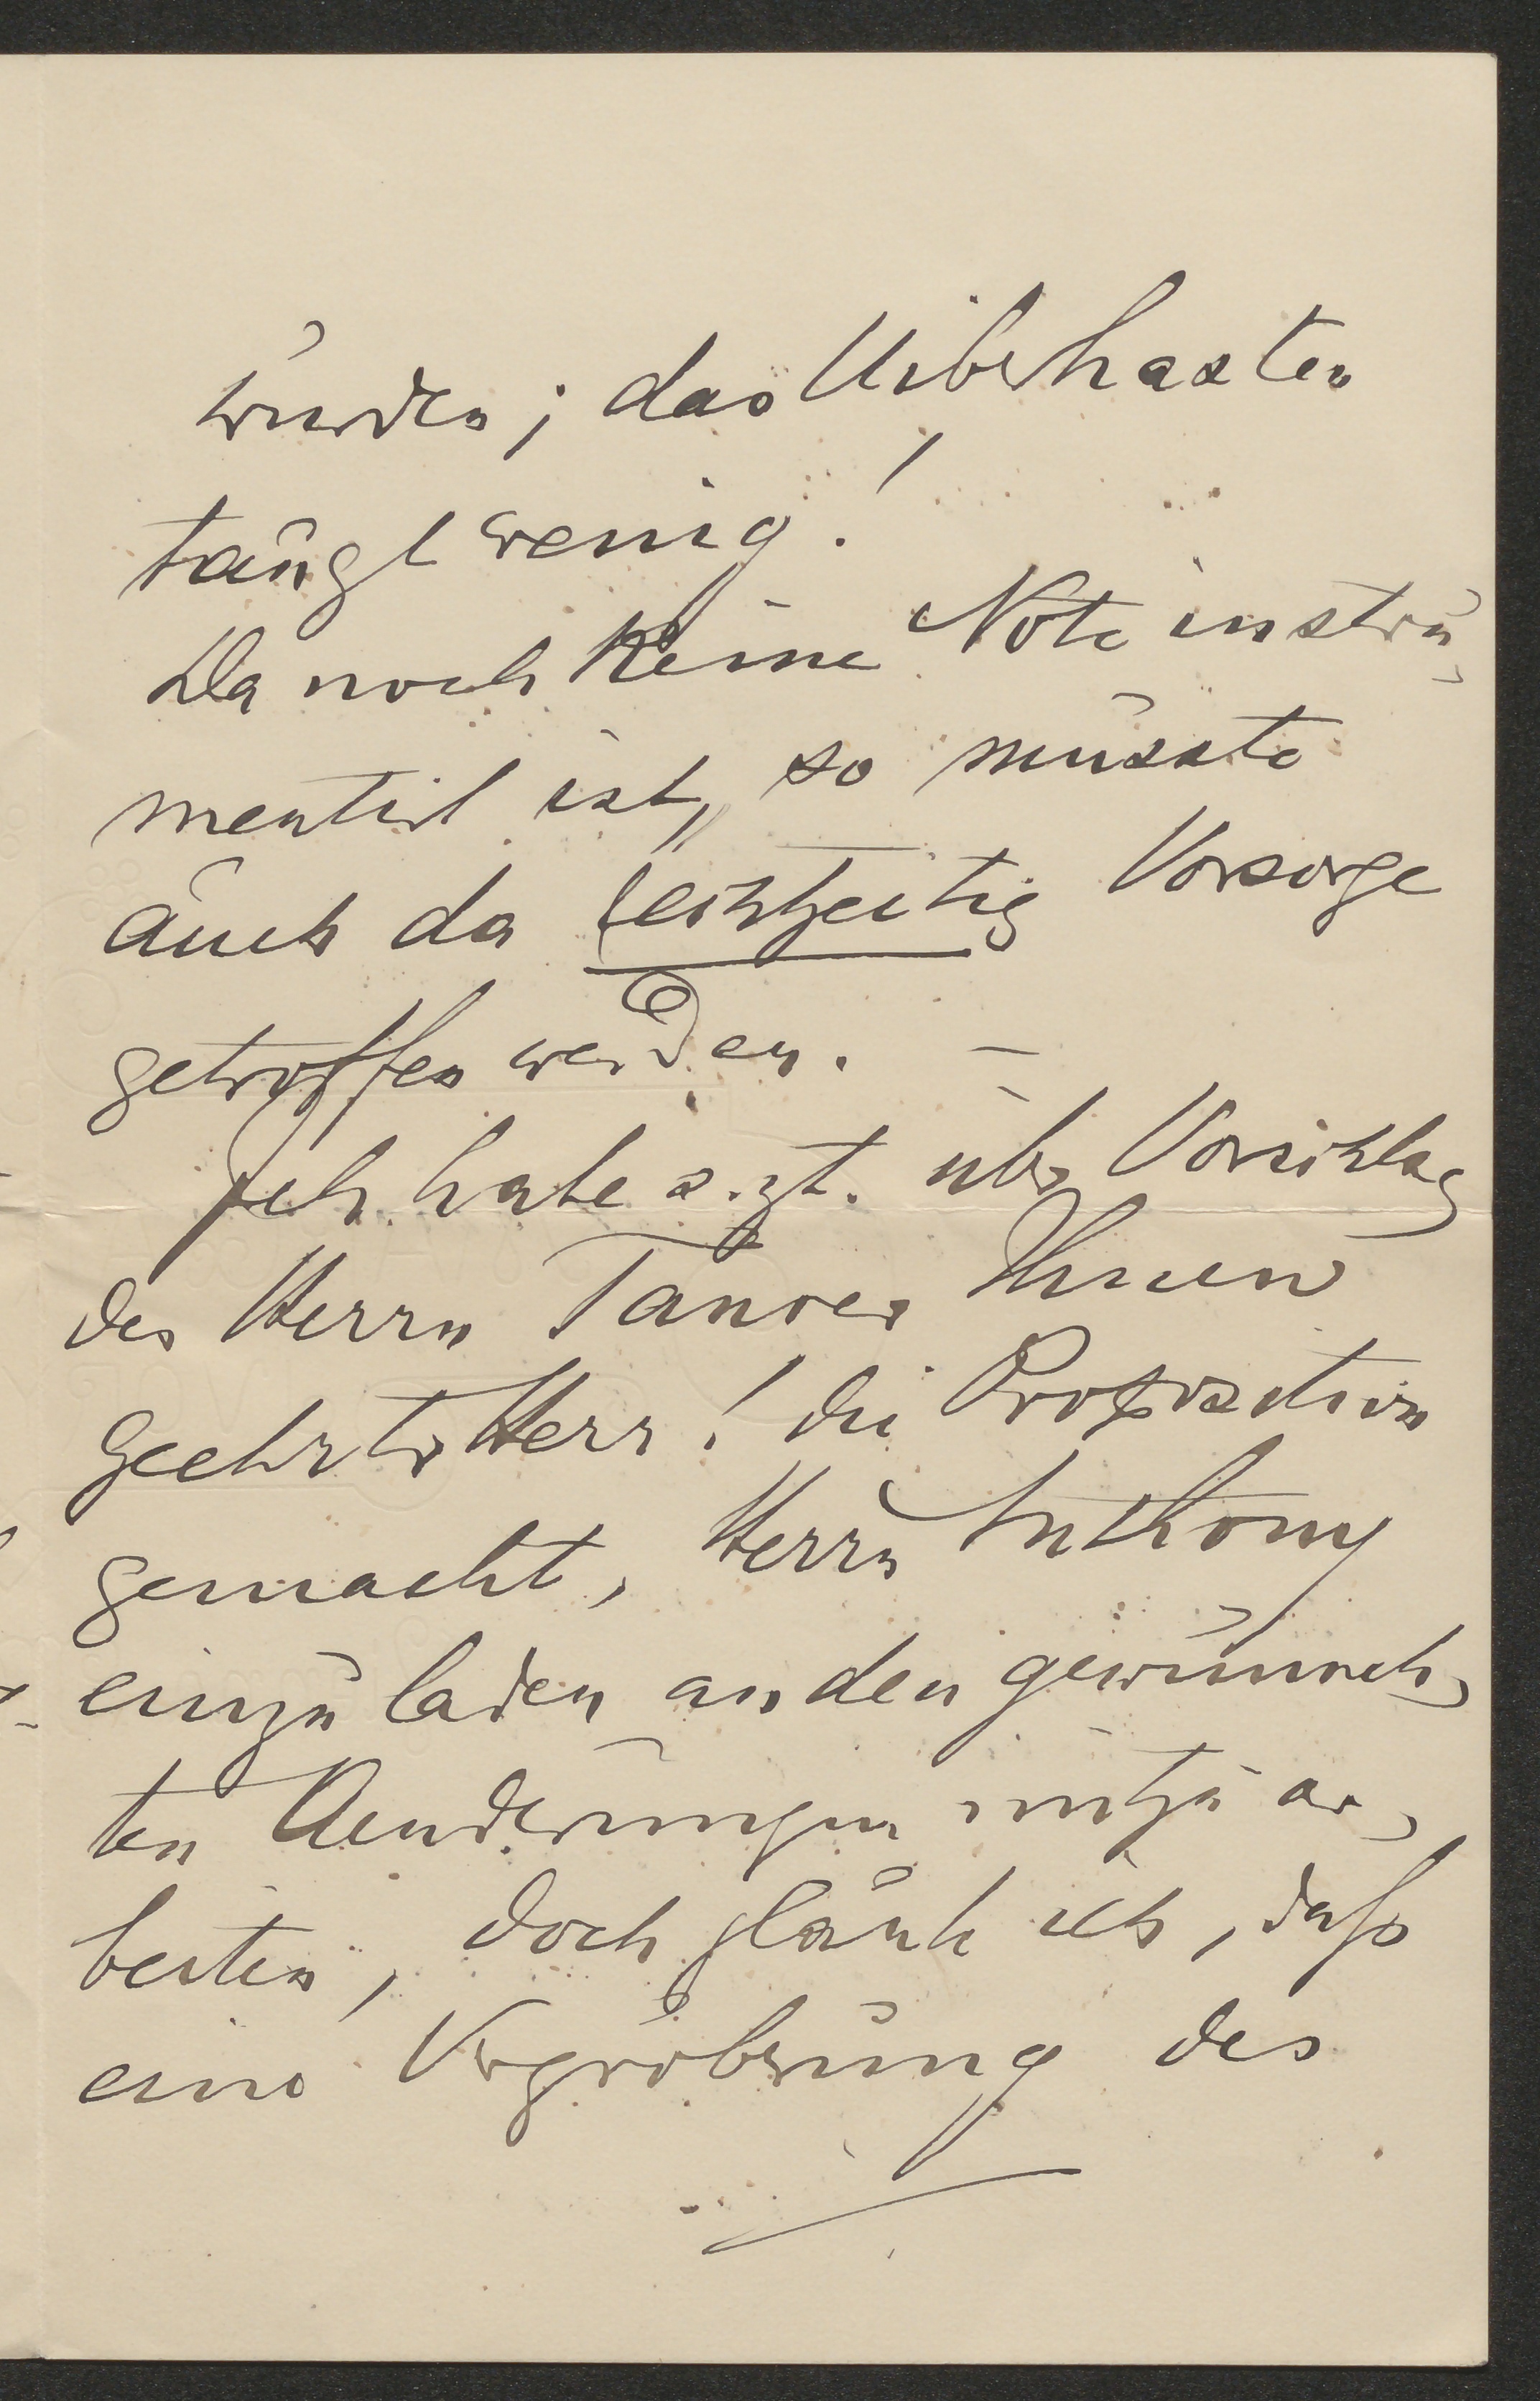 wurden; das Uiberhasten
taugt wenig!
Da noch keine Note instru-
mentirt ist, so müsste
auch da rechtzeitig Vorsorge
getroffen werden. —
Ich habe s. Zt. über Vorschlag
des Herrn Tauver Ihnen
geehrter Herr! die Proposition
gemacht, Herrn Anthony
einzuladen an den gewünsch-
ten Aenderungen mitzu ar-
beiten, doch glaub ich, daß
eine Vergröberung des